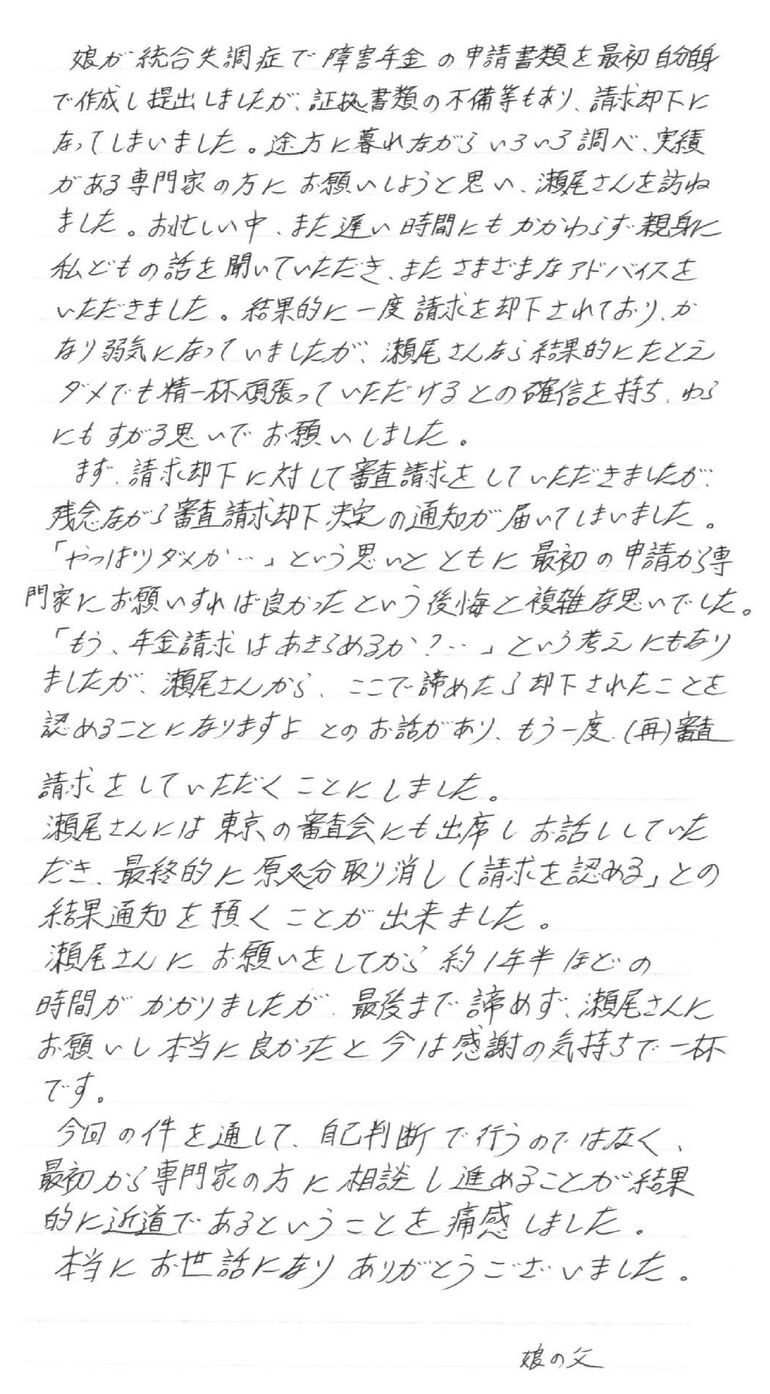 娘が統合失調症で障害年金の申請書類を最初自分自身
で作成し提出しましたが、証拠書類の不備等もあり、請求却下に
なってしまいました。途方に暮れながらいろいろ調べ、実績
がある専門家の方にお願いしようと思い、瀬尾さんを訪ね
ました。お忙しい中、また遅い時間にもかかわらず親身に
私どもの話を聞いていただき、またさまざまなアドバイスを
いただきました。結果的に一度請求を却下されており、か
なり弱気になっていましたが、瀬尾さんなら結果的にたとえ
ダメでも精一杯頑張っていただけるとの確信を持ち、わら
にもすがる思いでお願いしました。
まず、請求却下に対して審査請求をしていただきましたが、
残念ながら審査請求却下決定の通知が届いてしまいました。
「やっぱりダメか…」という思いとともに最初の申請から専
門家にお願いすれば良かったという後悔と複雑な思いでした。
「もう、年金請求はあきらめるか?…」という考えにもなり
ましたが、瀬尾さんから、ここで諦めたら却下されたことを
認めることになりますよとのお話があり、もう一度、(再)審査
請求をしていただくことにしました。
瀬尾さんには東京の審査会にも出席しお話ししていた
だき、最終的に原処分取り消し(請求を認める」との
結果通知を預くことが出来ました。
瀬尾さんにお願いをしてから約1年半ほどの
時間がかかりましたが、最後まで諦めず、瀬尾さんに
お願いし本当に良かったと今は感謝の気持ちで一杯
です。
今回の件を通して、自己判断で行うのではなく、
最初から専門家の方に相談し進めることが結果
的に近道であるということを痛感しました。
本当にお世話になりありがとうございました。
娘の父